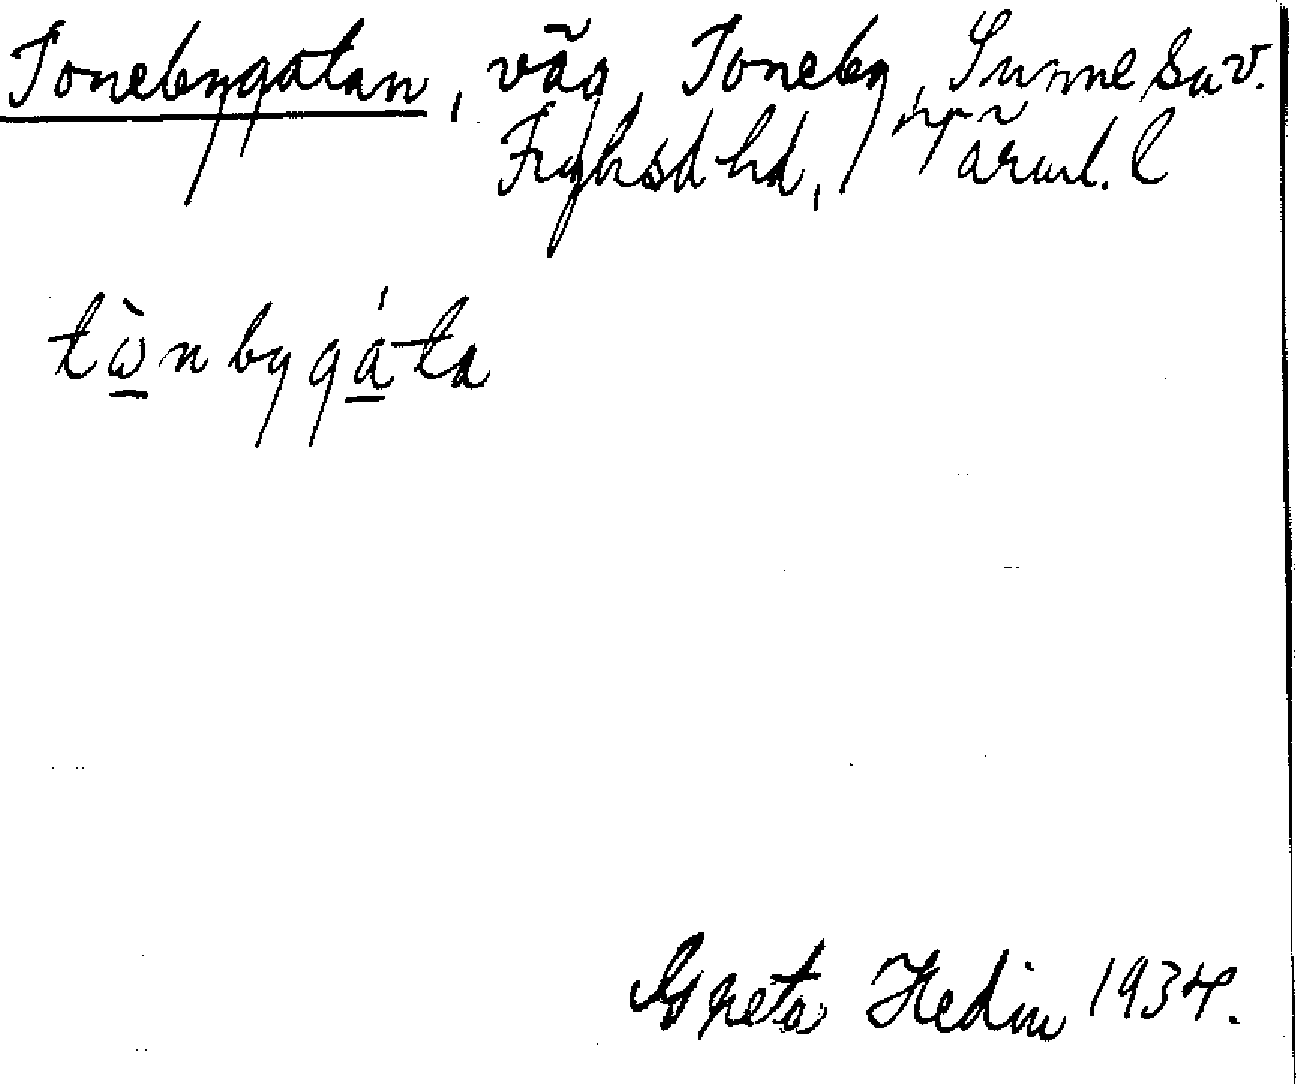 Tonebygatan, väg, Toneby, Sunne sn v.
Fryksd hd, Värml. l
tὼnbygáta
Greta Hedin 1934.